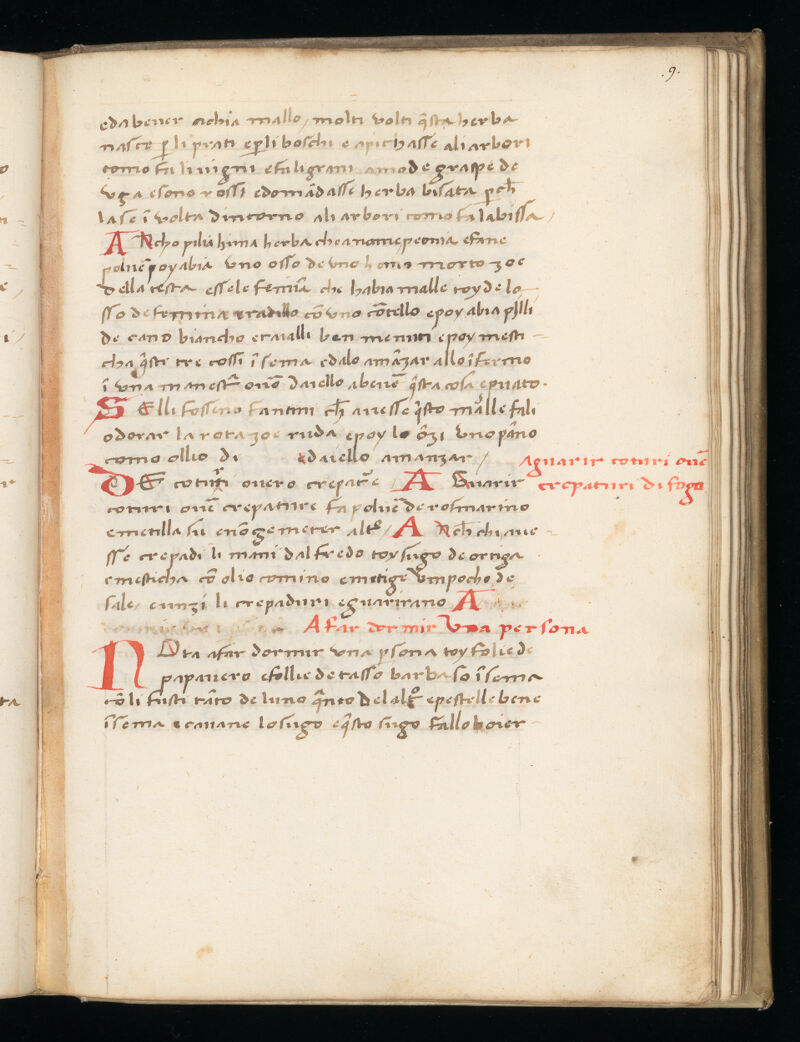 .9.
eda bever achia mallo, molti volti q̄sta herba
nasce p̱ li prati ep̱li boschi e apichasse ali arbori
como fa li vigni efa li grani amo de graspe de
vga esono rossi edomādasse herba bīsata p̱ch̄
la se ī volta dintorno ali arbori como fa la bissa,
ANcho pilia hūna herba che anome peonia efane
polūe poy abia vno osso de vno homo morto zoe
della testa esse le femīa che habia malle toy de lo
sso de femina e radillo cō vno cōtello epoy abia
de cano biancho e ben menuti epoy mesti
cha q̄sti tre cossi īsema edalo amāzar allo īfermo
ī vna manestr̄ ovō davello abeuē q̄sta cosa epvato.
SElli fosseno fantini ch̄ avesse q̄sto malle fali
odorar la rota zoe ruda epoy lo ōzi vno pāno
como ollio di edaiello amanzar,
Aguarir coturi ouē
crepaturi di fogo
DE coturi overo crepat̄e A Guarir
coturi ouē crepature fa poluē de rosmarino
emetilla su enōge meter alt̄o, A Nch̄ chi aue
sse crepadi li mani dal fredo toy sugo de ortiga
emesticha cō olio comino emitige vmpocho de
sale, eunzi li crepaduri eguarirano A
A far dormir Vna persona
NOta afar dormir vna p̱sona toy folie de
papavero efollie de tasso barbaso īsema
cō li fusti tāto de luno q̄nto del alt̄o epestelle bene
īsema ecavane lo sugo eq̄sto sugo fallo boier